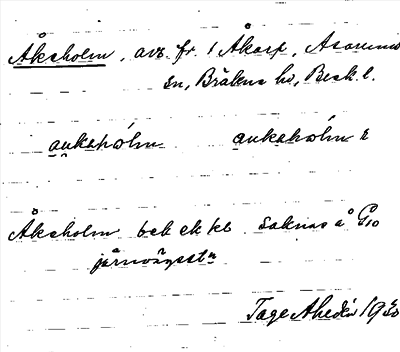 Åksholm, avs. fr. 1 Åkarp, Asarums
sn, Bräkne hd, Blek. l.
aukshólm aukshólm
Åksholm bok ek kl saknas å G10
järnvägsstn
Tage Ahedén 1930